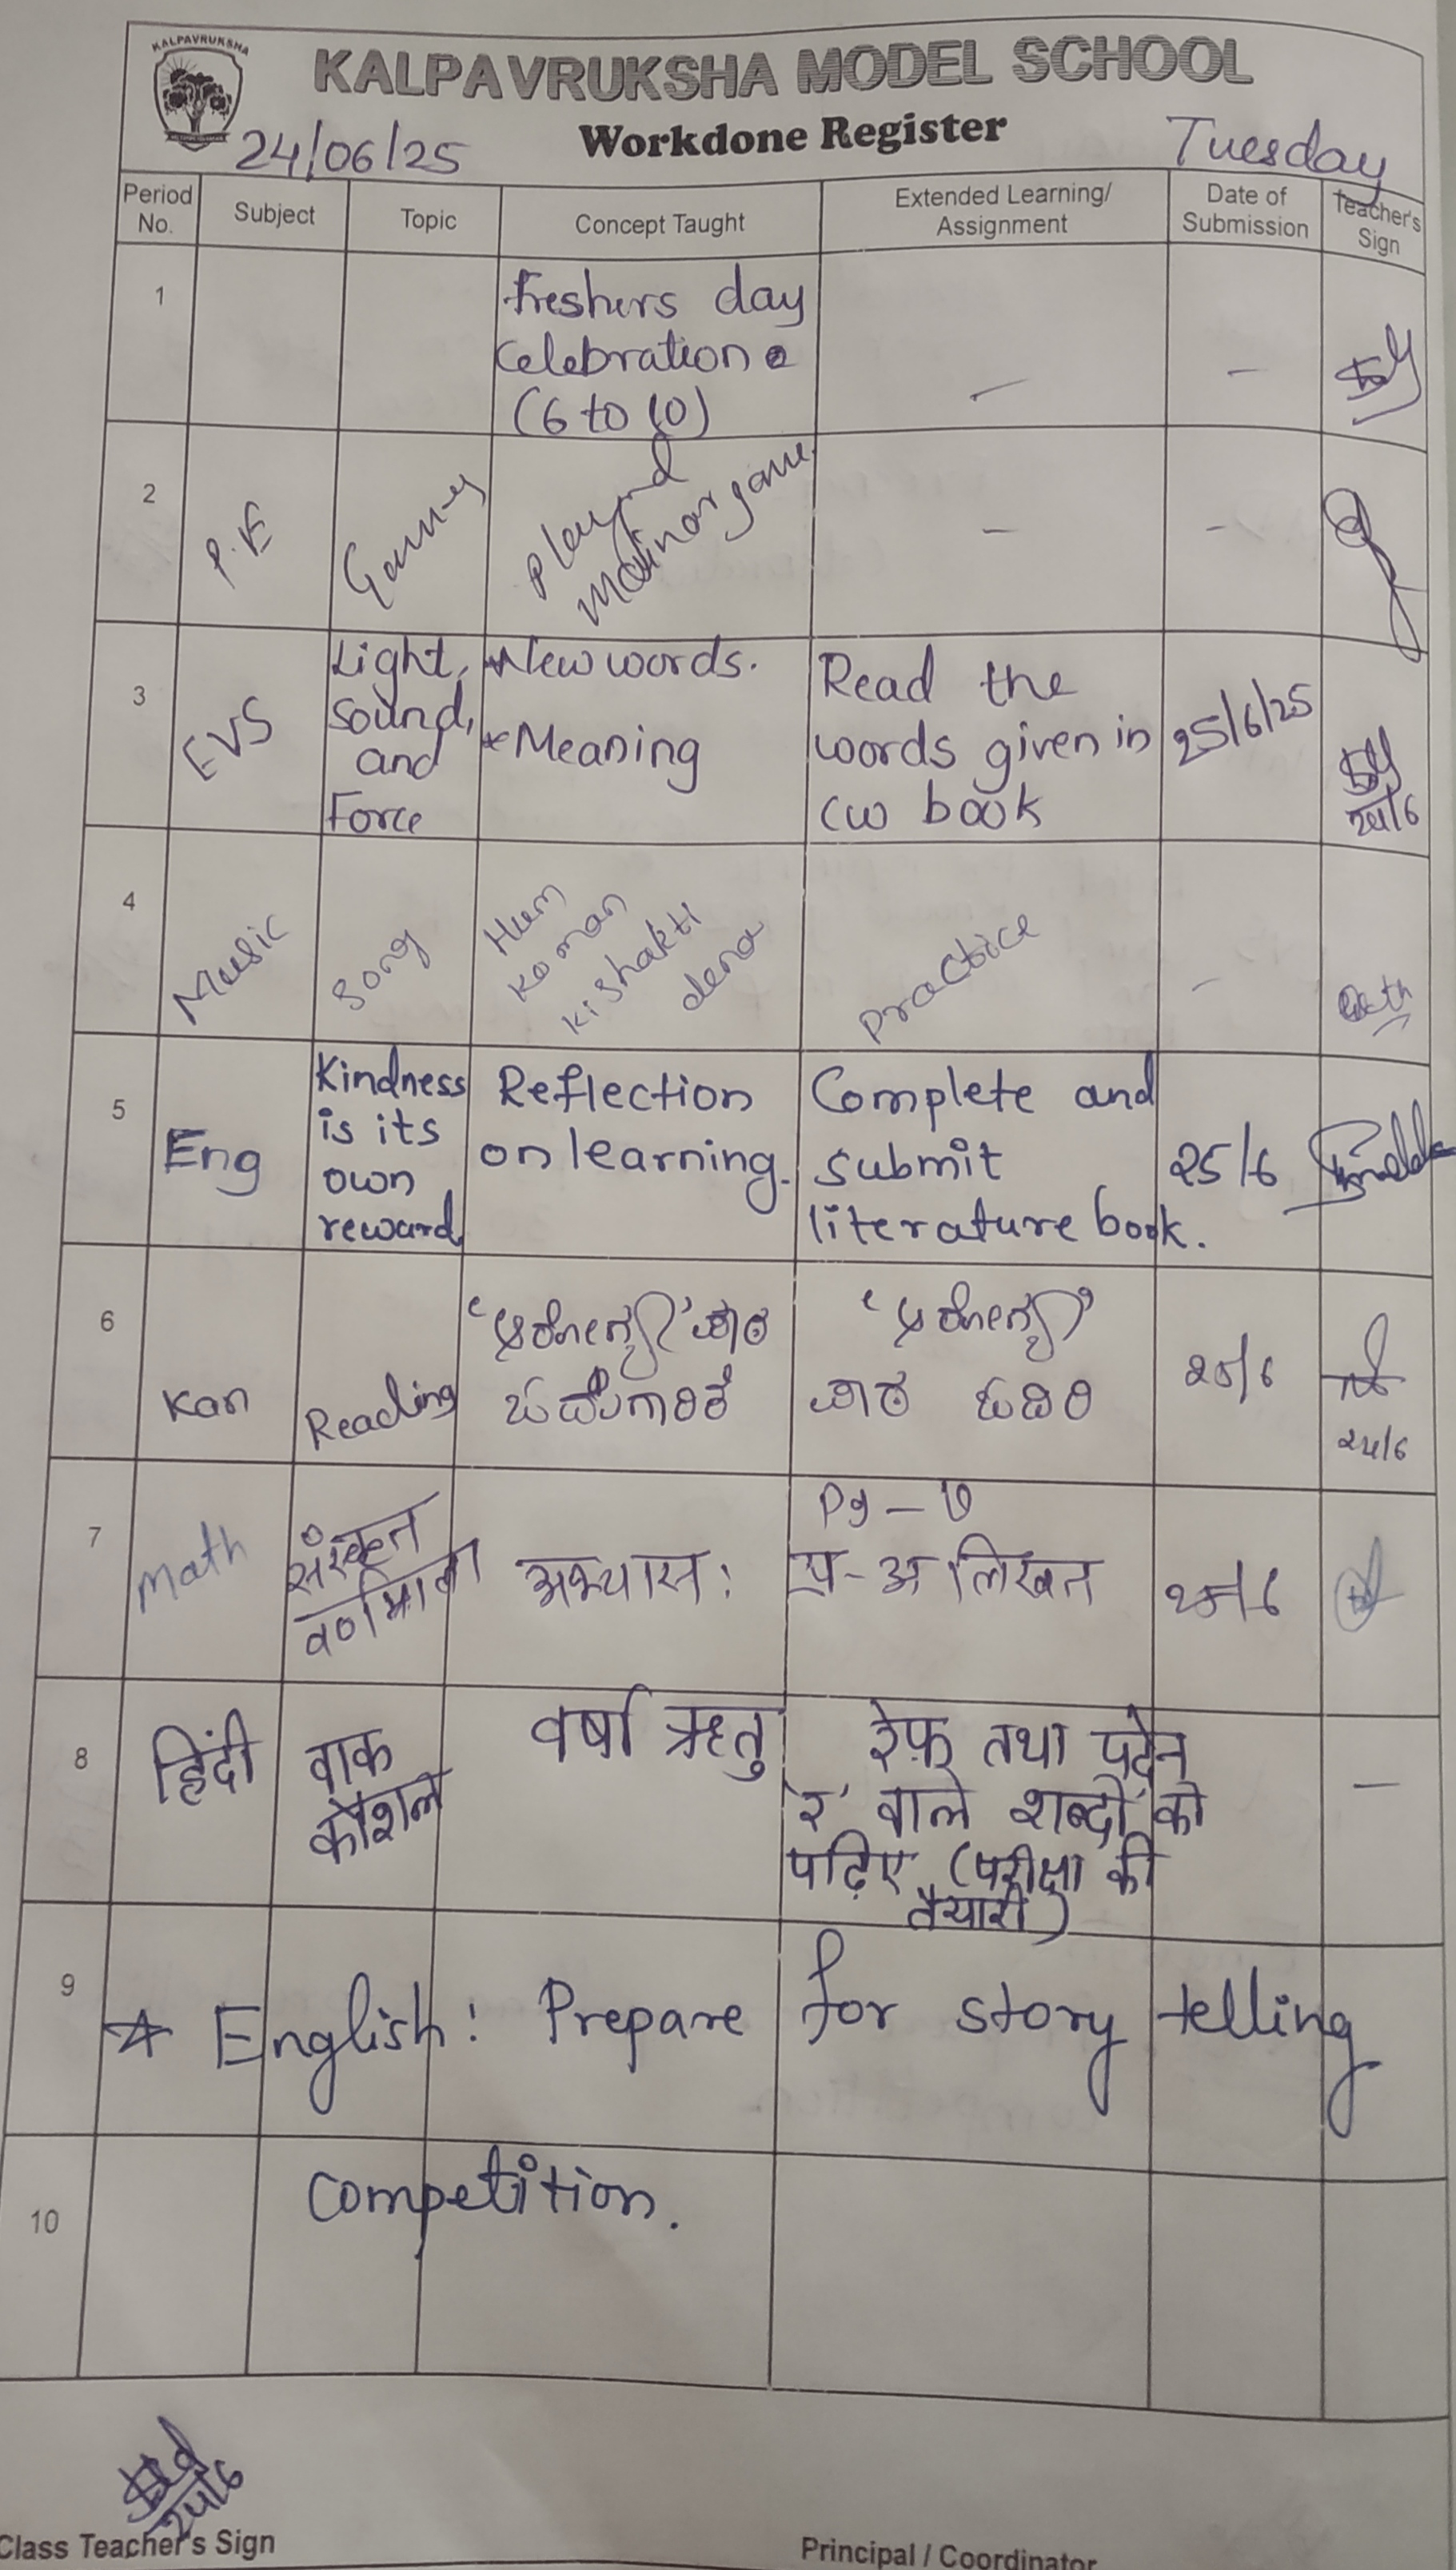 KALPAVRUKSHA
KALPAVRUKSHA MODEL SCHOOL
Workdone Register
24/06/25
Tuesday
Period No.
Subject
Topic
Concept Taught
Extended Learning/
Assignment
Date of
Submission
Teacher's
Sign
1
freshers day
celebration
(6 to 10)
-
-
2
P.E
Games
Played
minor game
-
-
3
EVS
Light,
Sound,
and
Force
* New words.
* Meaning
Read the
words given in
cw book
25/6/25
24/6
4
Music
Song
Hum
ko man
ki shakti
dena
practice
-
5
Eng
Kindness
is its
own
reward
Reflection
on learning.
Complete and
submit
literature book.
25/6
6
Kan
Reading
'ಆರೋಗ್ಯ' ಪಾಠ
ಓದುಗಾರಿಕೆ
'ಆರೋಗ್ಯ'
ಪಾಠ ಓದಿರಿ
25/6
24/6
7
Math
संस्कृत
वर्णमाला
अभ्यास:
Pg - 7
प्र-अ लिखत
25/6
8
हिंदी
वाक
कौशल
वर्षा ऋतु
रेफ़ तथा पदेन
'र' वाले शब्दों को
पढ़िए (परीक्षा की
तैयारी)
-
9
* English: Prepare for story telling
10
competition.
24/6
Class Teacher's Sign
Principal / Coordinator